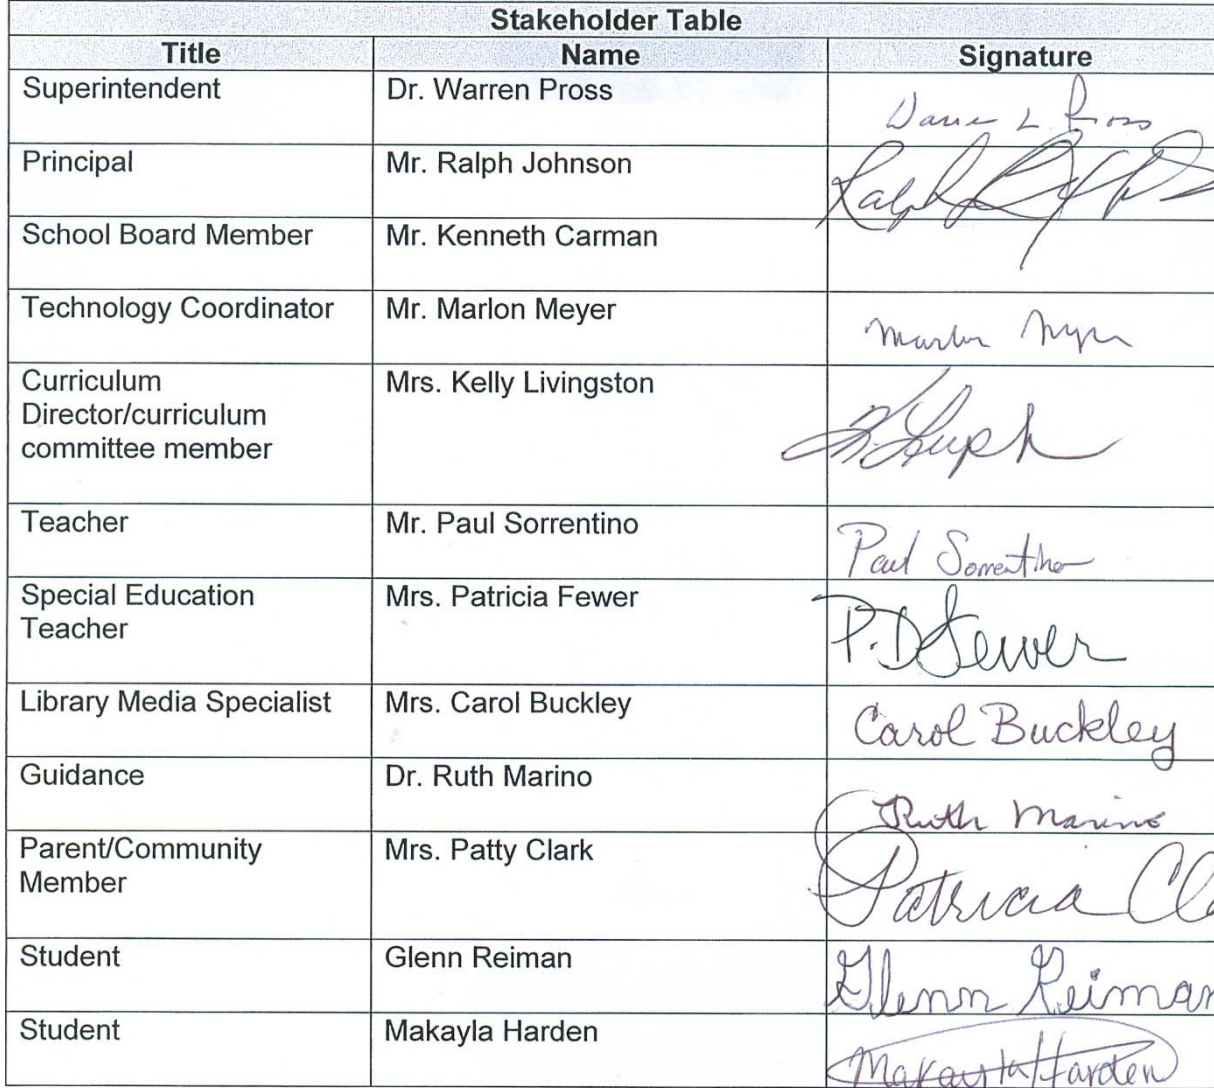 Stakeholder Table
Title Name Signature
Superintendent Dr. Warren Pross
Principal Mr. Ralph Johnson Ralph
School Board Member Mr. Kenneth Carman
Technology Coordinator Mr. Marlon Meyer
Curriculum Mrs. Kelly Livingston
Director/curriculum
committee member
Teacher Mr. Paul Sorrentino Paul Sorrentino
Special Education Mrs. Patricia Fewer P.D Fewer
Teacher
Library Media Specialist Mrs. Carol Buckley Carol Buckley
Guidance Dr. Ruth Marino Ruth Marino
Parent/Community Mrs. Patty Clark Patricia Cla
Member
Student Glenn Reiman Glenn Reiman
Student Makayla Harden Makayla Harden